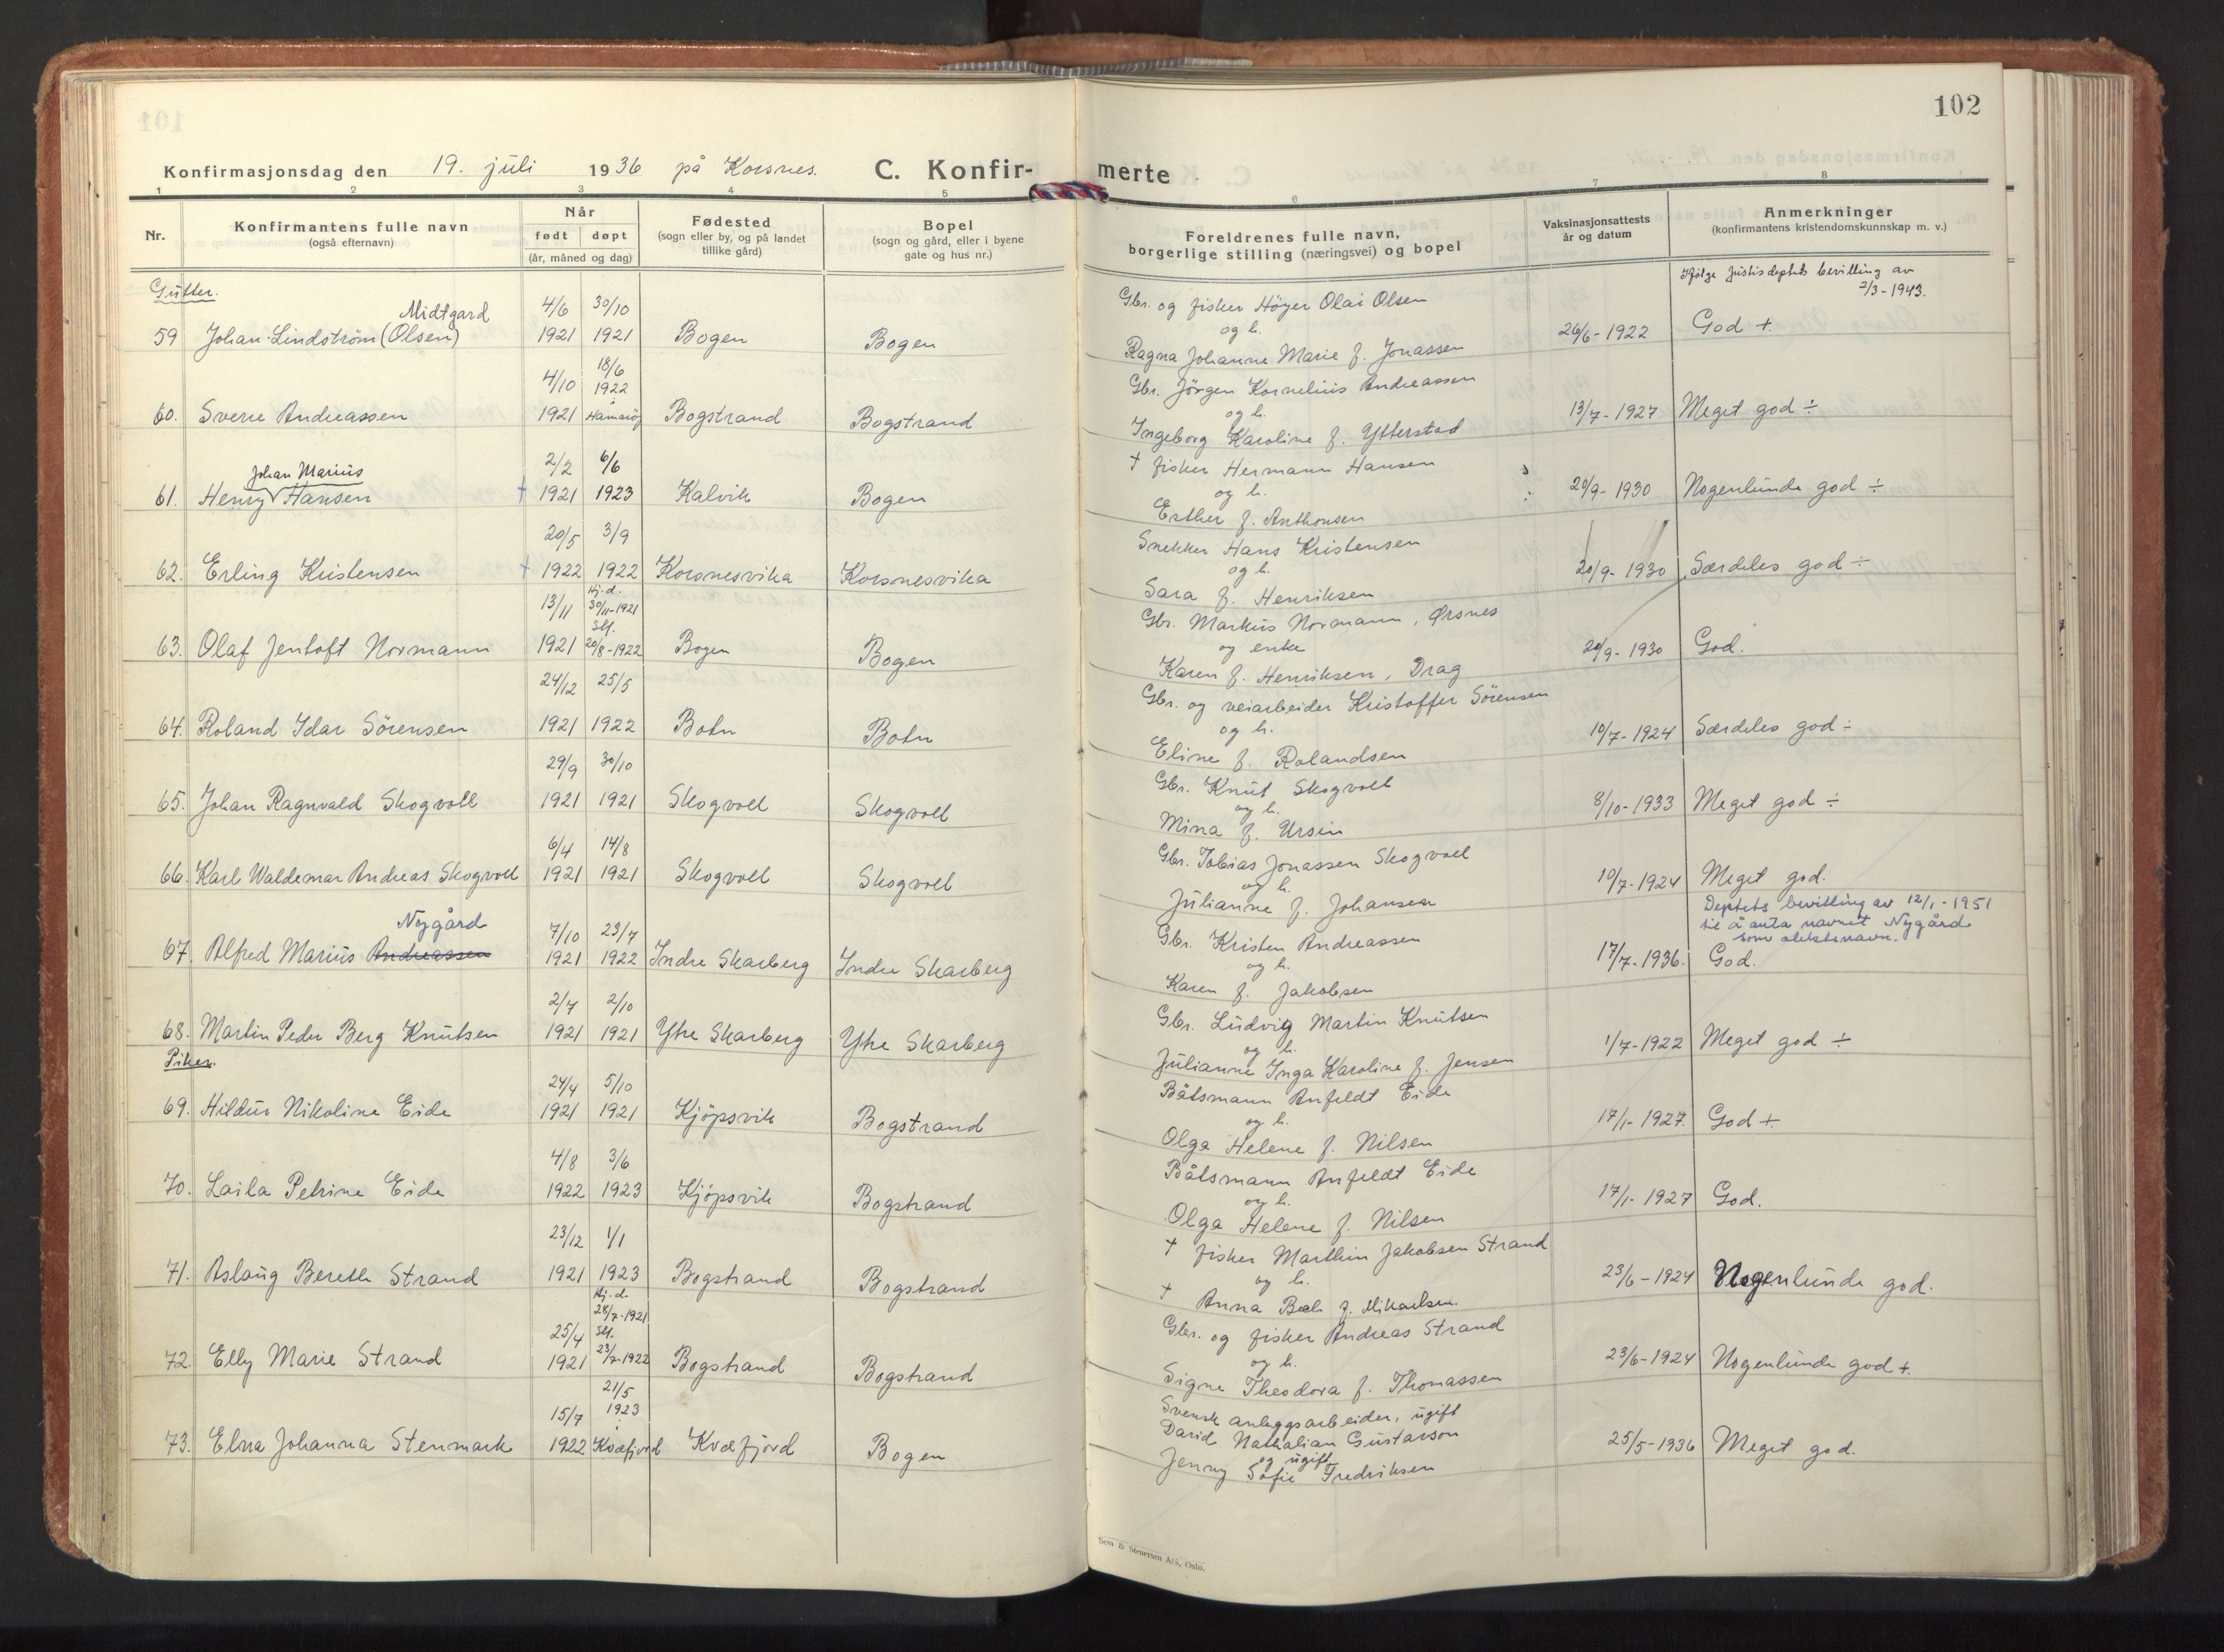 102
Konfirmasjonsdag den 19. juli 1936 på Korsnes. C. Konfir-merte
1 2 3 4 5 6 7 8
Nr.
Konfirmantens fulle navn
(også efternavn)
Når
født døpt
(år, måned og dag)
Fødested
(sogn eller by, og på landet
tillike gård)
Bopel
(sogn og gård, eller i byene
gate og hus nr.)
Foreldrenes fulle navn,
borgerlige stilling (næringsvei) og bopel
Vaksinasjonsattests
år og datum
Anmerkninger
(konfirmantens kristendomskunnskap m. v.)
Gutter.
Ifølge Justisdeptets bevilling av
2/3-1943.
Midtgard 4/6 30/10 Gbr. og fisker Höyer Olai Olsen
og h.
59 Johan Lindström (Olsen) 1921 1921 Bogen Bogen 26/6-1922 God +
Ragna Johanne Marie f. Jonassen
4/10 18/6 1922 Gbr. Jörgen Kornelius Andreassen
og h.
60. Sverre Andreassen 1921 Hamarøy Bogstrand Bogstrand 13/7-1927 Meget god ÷
Ingeborg Karoline f. Ytterstad
Johan Marius 2/2 6/6 † fisker Hermann Hansen
og h.
61. Henry Hansen † 1921 1923 Kalvik Bogen 20/9-1930 Nogenlunde god ÷
Esther f. Anthonsen
20/5 3/9 Snekker Hans Kristensen
og h.
62. Erling Kristensen † 1922 1922 Korsnesvika Korsnesvika 20/9-1930 Særdeles god ÷
Sara f. Henriksen
13/11 Hj. d. 30/11-1921 Gbr. Markus Normann, Ørsnes
Stf.
og enke
63. Olaf Jentoft Normann 1921 20/8-1922 Bogen Bogen 20/9-1930 God.
Karen f. Henriksen, Drag
24/12 25/5 Gbr. og veiarbeider Kristoffer Sörensen
og h.
64. Roland Idar Sörensen 1921 1922 Botn Botn 10/7-1924 Særdeles god ÷
Eline f. Rolandsen
29/9 30/10 Gbr. Knut Skogvoll
og h.
65. Johan Ragnvald Skogvoll 1921 1921 Skogvoll Skogvoll 8/10-1933 Meget god ÷
Mina f. Ursin
6/4 14/8 Gbr. Tobias Jonassen Skogvoll
og h.
66. Karl Waldemar Andreas Skogvoll 1921 1921 Skogvoll Skogvoll 10/7-1924 Meget god.
Julianne f. Johansen
Deptets bevilling av 12/1-1951
til å anta navnet Nygård
som slektsnavn.
Nygård 7/10 23/7 Gbr. Kristen Andreassen
og h.
67. Alfred Marius Andreassen 1921 1922 Indre Skarberg Indre Skarberg 17/7-1936. God.
Karen f. Jakobsen
2/7 2/10 Gbr. Ludvig Martin Knutsen
og h.
68. Martin Peder Berg Knutsen 1921 1921 Ytre Skarberg Ytre Skarberg 1/7-1922 Meget god ÷
Julianne Inga Karoline f. Jensen
Piker.
24/4 5/10 Båtsmann Anfeldt Eide
og h.
69. Hildur Nikoline Eide 1921 1921 Kjöpsvik Bogstrand 17/1-1927. God +
Olga Helene f. Nilsen
4/8 3/6 Båtsmann Anfeldt Eide
og h.
70. Laila Petrine Eide 1922 1923 Kjöpsvik Bogstrand 17/1-1927 God.
Olga Helene f. Nilsen
23/12 1/1 † fisker Marthin Jakobsen Strand
og h.
71. Aslaug Bereth Strand 1921 1923 Bogstrand Bogstrand 23/6-1924 Nogenlunde god.
† Anna f. Mikaelsen.
25/4 Hj. d. 28/7-1921 Gbr. og fisker Andreas Strand
Stf.
og h.
72. Elly Marie Strand 1921 23/7-1922 Bogstrand Bogstrand 23/6-1924 Nogenlunde god +.
Signe Theodora f. Thomassen
15/7 21/5 1923 Svensk anleggsarbeider, ugift
i David Nathalian Gustavson
og ugift
73. Elna Johanna Stenmark 1922 Kvæfjord Kvæfjord Bogen 25/5-1936 Meget god.
Jenny Sofie Fredriksen
Sem & Stenersen A/S, Oslo.